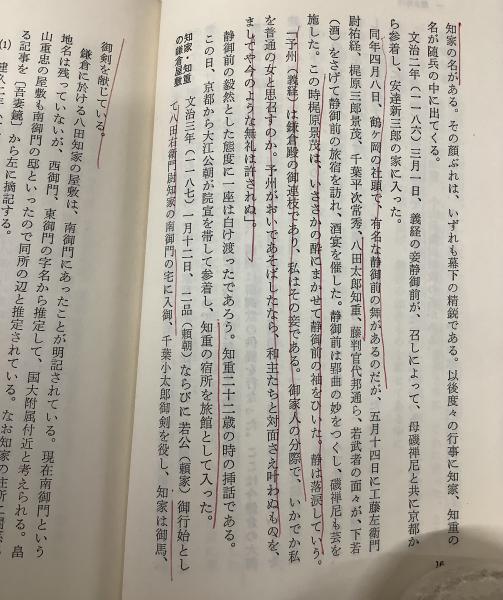 知家の名がある。その顔ぶれは、いずれも幕下の精鋭である。以後度々の行事に知家、知重の
名が随兵の中に出てくる。
文治二年（一一八六）三月一日、義経の妾静御前が、召しによって、母磯禅尼と共に京都か
ら参着し、安達新三郎の家に入った。
同年四月八日、鶴ヶ岡の社頭で、有名な静御前の舞があるのだが、五月十四日に工藤左衛門
尉祐経、梶原三郎景茂、千葉平次常秀、八田太郎知重、藤判官代邦通ら、若武者の面々が、下若
（酒）をさげて静御前の旅宿を訪れ、酒宴を催した。静御前は郢曲の妙をつくし、磯禅尼も芸を
施した。この時梶原景茂は、いささかの酔にまかせて静御前の袖をひいた。静は落涙していう。
「予州（義経）は鎌倉殿の御連枝であり、私はその妾である。御家人の分際で、いかでか私
を普通の女と思召すのか。予州がおいであそばしたなら、和主たちと対面さえ叶わぬものを、
ましてや今のような無礼は許されぬ」。
静御前の毅然とした態度に一座は白け渡ったであろう。知重二十二歳の時の挿話である。
この日、京都から大江公朝が院宣を帯して参着し、知重の宿所を旅館として入った。
知家・知重
の鎌倉屋敷
文治三年（一一八七）一月十二日、二品（頼朝）ならびに若公（頼家）御行始とし
て八田右衛門尉知家の南御門の宅に入御、千葉小太郎御剣を役し、知家は御馬、
御剣を献じている。
鎌倉に於ける八田知家の屋敷は、南御門にあったことが明記されている。現在南御門という
地名は残っていないが、西御門、東御門の字名から推定して、国大附属付近と考えられる。畠
山重忠の屋敷も南御門の邸といったので同所の辺と推定されている。なお知家の住所に関す
る記事を「吾妻鏡」から左に摘記する。
(1)
16